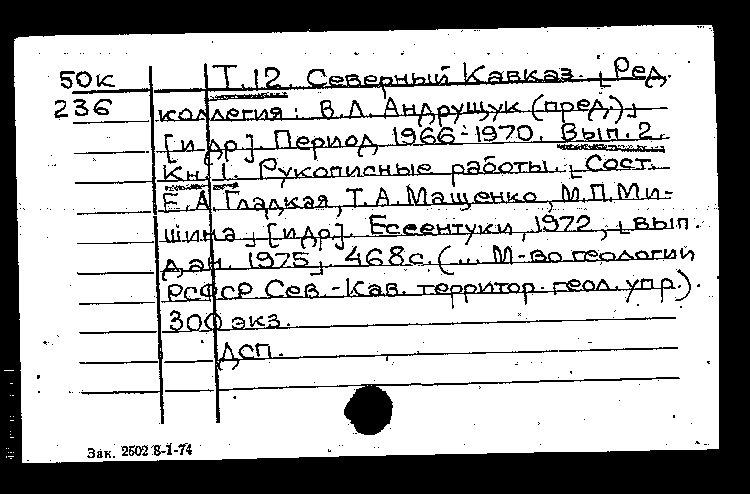 50к Т.12. Северный Кавказ. [Ред.
236 коллегия: В.Л. Андрущук (пред.)]
[и др.]. Период 1966-1970. Вып. 2.
Кн. 1. Рукописные работы. [Сост.
Е.А. Гладкая, Т.А. Мащенко, М.П. Ми-
шина] [и др]. Ессентуки, 1972, [вып.
дан. 1975]. 468с. (... М-во геологии
РСФСР Сев.-Кав. территор. геол. упр.).
300 экз.
ДСП.
Зак. 2502 8-1-74